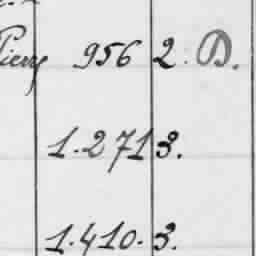 Pierre 956 2. D.
1.271 3.
1.410. 3.